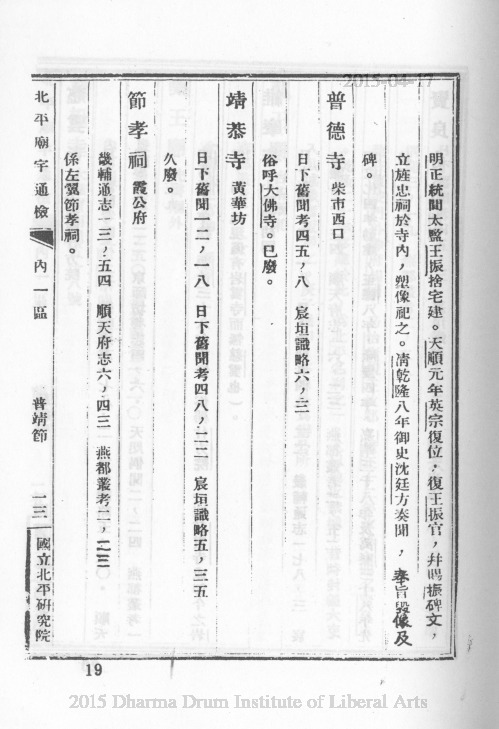 明正統間太監王振捨宅建。天順元年英宗復位，復王振官，幷賜振碑文，
立旌忠祠於寺內，塑像祀之。清乾隆八年御史沈廷方奏聞，奉旨毀像及
碑。
普德寺 柴市西口
日下舊聞考四五，八 宸垣識略六，三
俗呼大佛寺。已廢。
靖恭寺 黃華坊
日下舊聞一二，一八 日下舊聞考四八，二二 宸垣識略五，三五
久廢。
節孝祠 霞公府
畿輔通志一三，五四 順天府志六，四三 燕都叢考二，二三
係左翼節孝祠。
北平廟宇通檢
內一區
普靖節
一三
國立北平研究院
19
2015-04-17
2015 Dharma Drum Institute of Liberal Arts